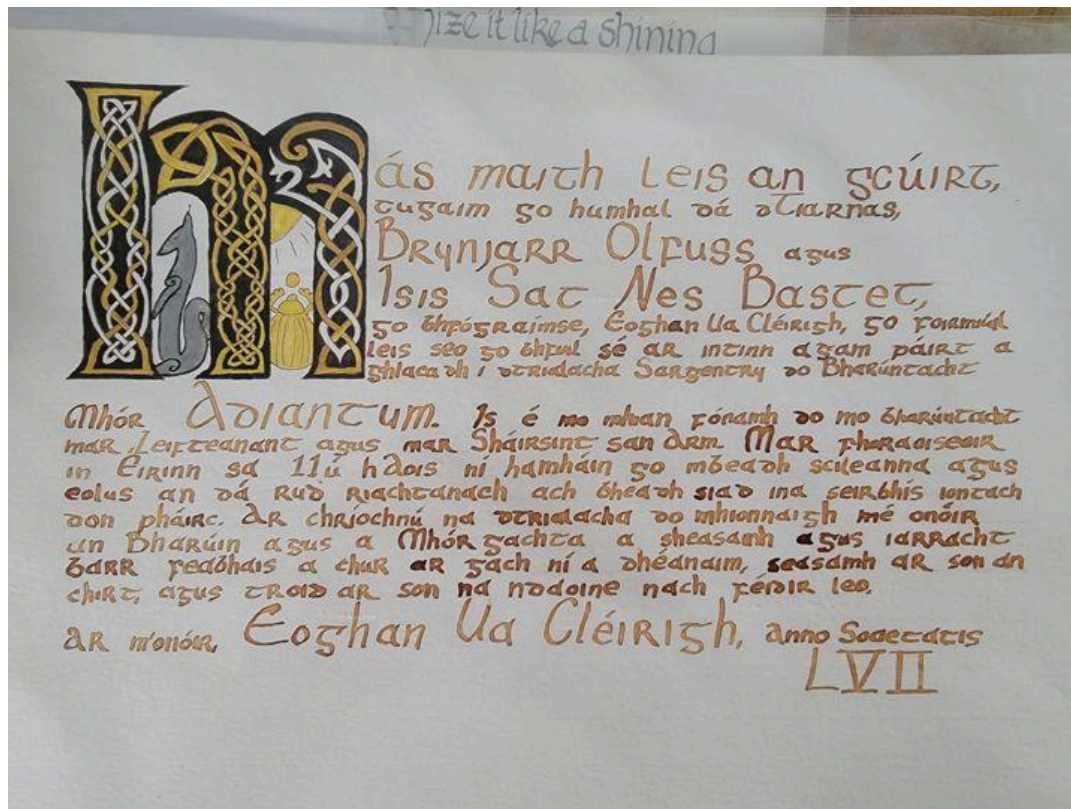 it like a shining
Más maith leis an gcúirt,
tugaim go humhal dá dTiarnas,
Brynjarr Olfuss agus
Isis Sat Nes Bastet,
go bhfógraímse, Eoghan Ua Cléirigh, go foirmiúil
leis seo go bhfuil sé ar intinn agam páirt a
ghlacadh i dtrialacha Sargentry do Bharúntacht
Mhór Adiantum. Is é mo mhian fónamh do mo bharúntacht
mar Leifteanant agus mar Sháirsint san Arm. Mar fhoraoiseoir
in Éirinn sa 11ú hAois ní hamháin go mbeadh scileanna agus
eolus an dá rud riachtanach ach bheadh siad ina seirbhís iontach
don pháirc. Ar chríochnú na dtrialacha do mhionnaigh mé onóir
an Bharúin agus a Mhórgachta a sheasamh agus iarracht
barr feabhais a chur ar gach ní a dhéanaim, seasamh ar son an
chirt, agus troid ar son na ndaoine nach féidir leo.
Ar m'onóir, Eoghan Ua Cléirigh, anno Societatis
LVII